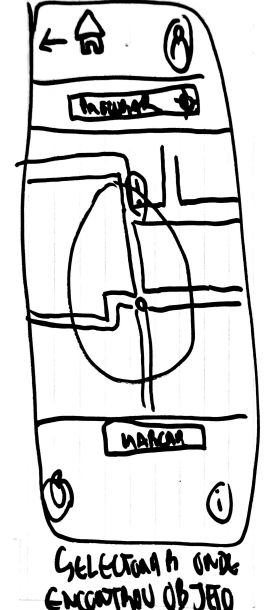 PROCURAR
MARCAR
i
SELECIONAR ONDE
ENCONTROU OBJETO